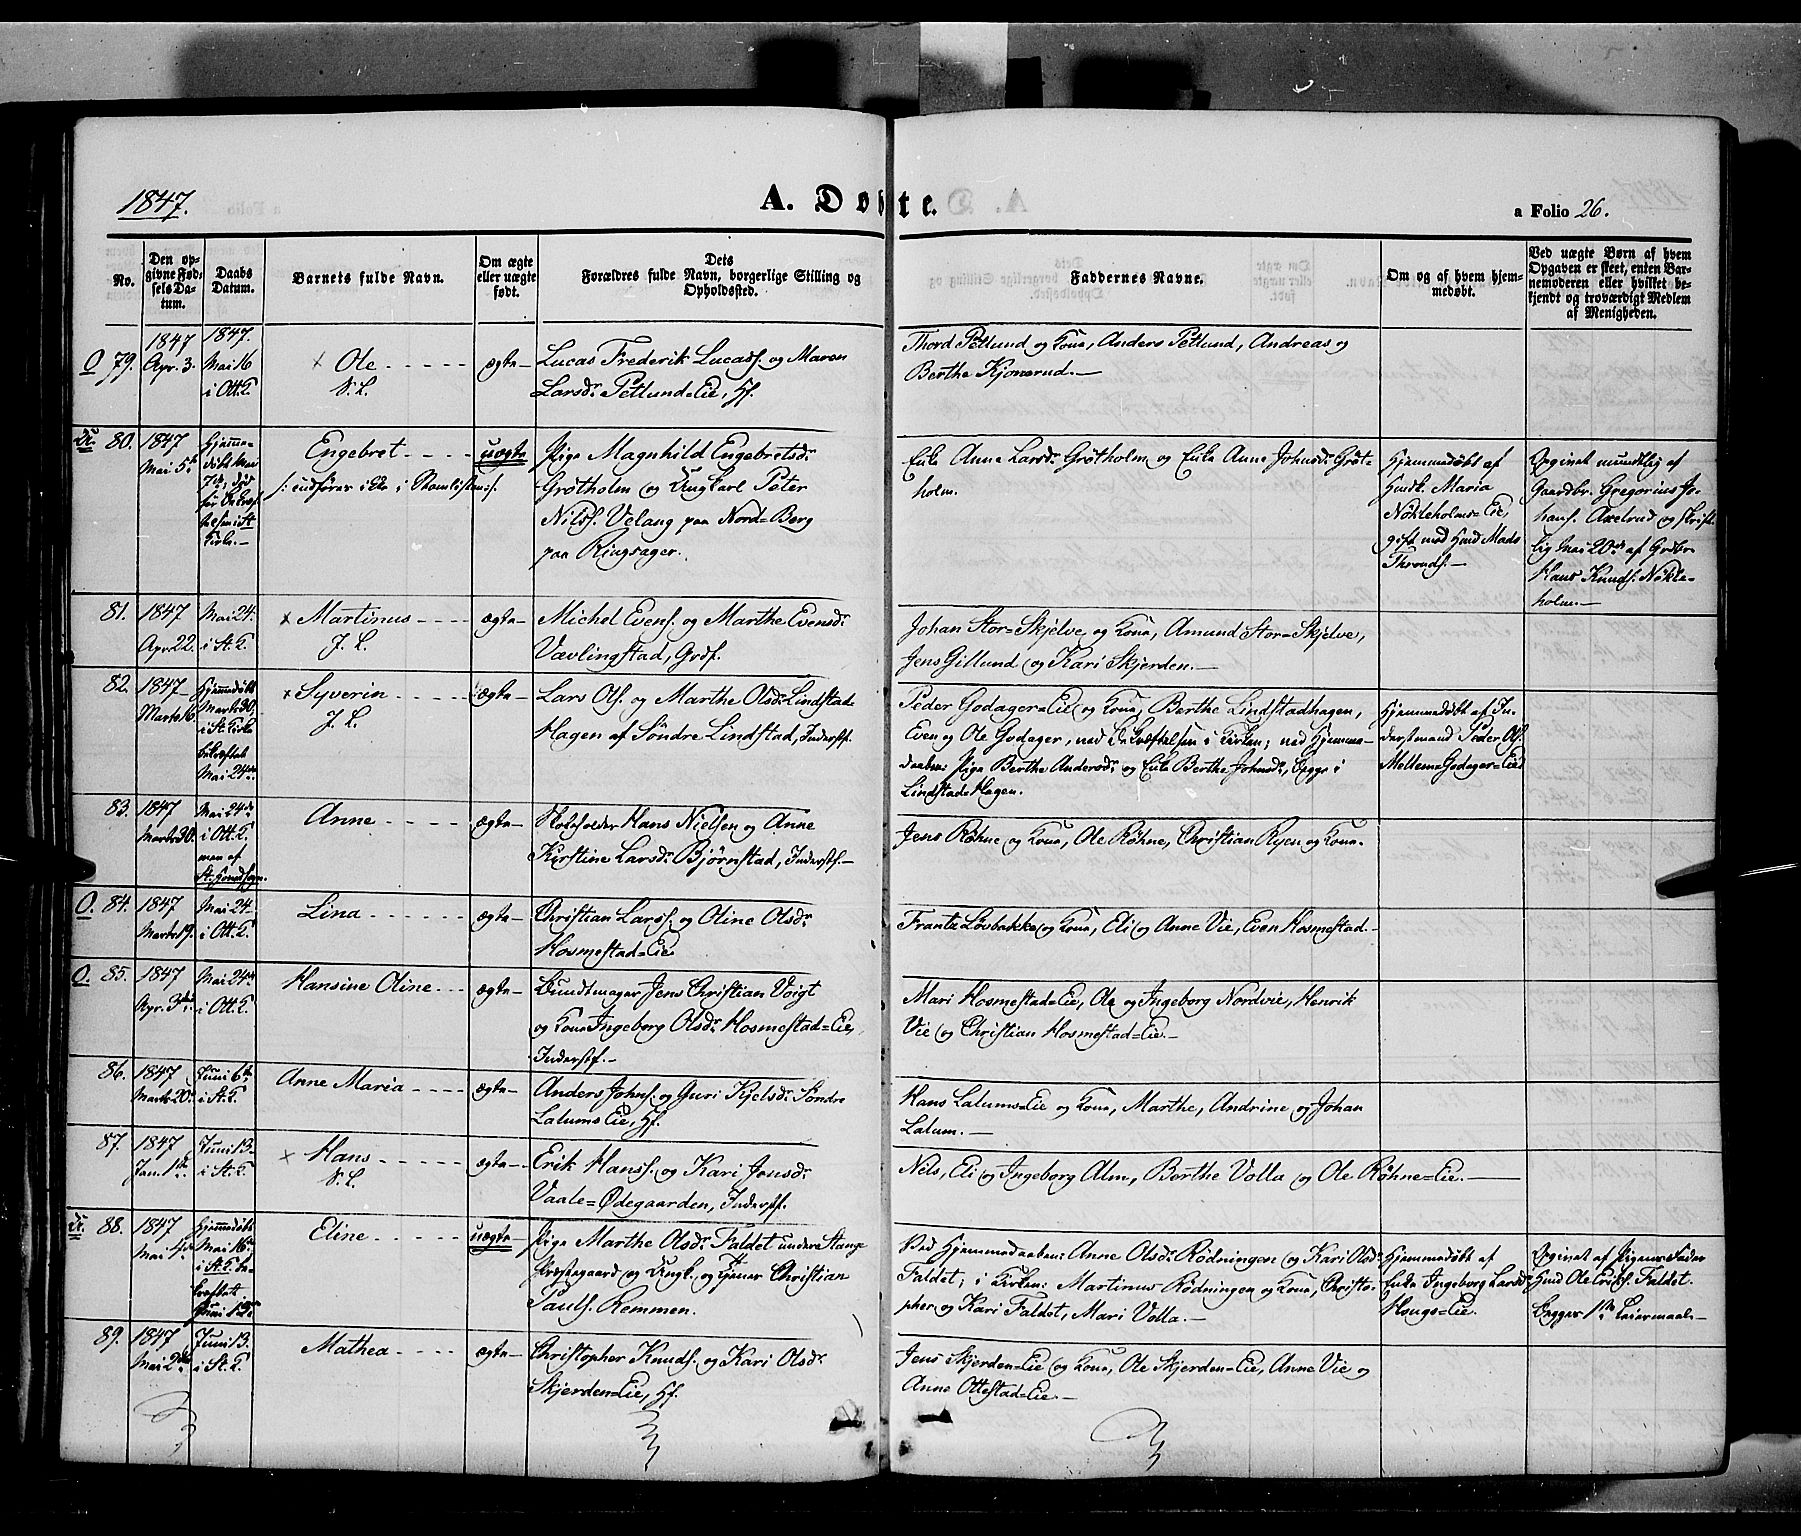 1847.
A. Døbte.
a Folio 26.
No.
Den op-
givne Fød-
sels Da-
tum.
Daabs
Datum.
Barnets fulde Navn.
Om ægte
eller uægte
født.
Dets
Forældres fulde Navn, borgerlige Stilling og
Opholdssted.
Faddernes Navne.
Om og af hvem hjem-
medøbt.
Ved uægte Børn af hvem
Opgaven er skeet, enten Bar-
nemoderen eller hvilket be-
kjendt og troværdigt Medlem
af Menigheden.
O 79.
1847
Apr. 3.
1847.
Mai 16
i Ott. K.
× Ole
N. L.
ægte
Lucas Frederik Lucass. og Maren
Larsdr. Petlund=Eie, Hf.
Thord Petlund og Kone, Anders Petlund, Andreas og
Berthe Kjonerud.
U. 80.
1847
Mai 5te
Hjemme-
døbt Mai
i St.
Kirke.
Engebret
uægte
Pige Magnhild Engebretsdr.
Grøtholm og Ungkarl Peter
Nilss. Velang paa Nord=Berg
paa Ringsager.
Enke Anne Larsdr. Grøtholm og Enke Anne Johnsdr. Grøt-
holm.
Hjemmedøbt af
Husk. Maria
Nökleholms=Eie,
gift med Husmd Mads
Thronds.
Opgivet mundtlig af
Gaardbr. Gregorius Jo-
hans. Axelrud og skrift-
lig Mai 20de af Grdbr.
Hans Knuds. Nökle-
holm.
81.
1847
Apr. 22.
Mai 24.
i St. K.
× Martinus
J. L.
ægte
Michel Evens. og Marthe Evensdr.
Vævlingstad, Grdf.
Johan Stor=Skjelve og Kone, Amund Stor=Skjelve,
Jens Gillund og Kari Skjerden.
82.
1847
Marts 16.
Hjemmedøbt
Marts 30.
i St. Kirke
bekræftet
Mai 24de
× Syverin
J. L.
ægte
Lars Ols. og Marthe Olsdr. Lindstad-
Hagen af Söndre Lindstad, Inderstf.
Peder Godager=Eie og Kone, Berthe Lindstadhagen,
Even og Ole Godager, ved Bekræftelsen i Kirken; ved Hjemme-
daaben: Pige Berthe Andersdr. og Enke Berthe Johnsdr., begge i
Lindstad=Hagen.
Hjemmedøbt af In-
derstmand Peder Ols.
Mellem=Godager=Eie
83.
1847
Marts 30.
Mai 24de
i Ott. K.
men af
St. Hovedsogn.
Anne
ægte
Skoleholder Hans Nielsen og Anne
Kirstine Larsdr. Bjørnstad, Inderstf.
Jens Røhne og Kone, Ole Røhne, Christian Ryen og Kone.
O. 84.
1847
Marts 19.
Mai 24
i Ott. K.
Lina
ægte
Christian Larss. og Oline Olsdr.
Hosmestad=Eie
Frantz Løvbakke og Kone, Eli og Anne Vie, Even Hosmestad.
O 85.
1847
Apr. 3die
Mai 24de
i Ott. K.
Hansine Oline
ægte
Bundtmager Jens Christian Voigt
og Kone Ingeborg Olsdr. Hosmestad=Eie,
Inderstf.
Mari Hosmestad=Eie, Ole og Ingeborg Nordvie, Henrik
Vie og Christian Hosmestad=Eie.
86.
1847
Marts 20.
Juni 6te
i St. K.
Anne Maria
ægte
Anders Johns. og Guri Kjelsdr. Söndre
Lalums Eie, Hf.
Hans Lalums=Eie og Kone, Marthe, Andrine og Johan
Lalum.
87.
1847
Jan. 1ste
Juni 13.
i St. K.
× Hans
N. L.
ægte
Erik Hanss. og Kari Jensdr.
Vaale=Ødegaarden, Inderstf.
Nils, Eli og Ingeborg Alm, Berthe Volla og Ole Røhne=Eie.
U. 88.
1847
Mai 4de
Hjemmedøbt
Mai 16.
i St. K. be-
kræftet
Juni 13.
Eline
uægte
Pige Marthe Olsdr. Faldet under Stange
Præstegaard og Ungk. og Tjener Christian
Pauls. Remmen.
Ved Hjemmedaaben: Anne Olsdr. Rødningen og Kari Olsdr.
Faldet; i Kirken: Martinus Rødningen og Kone, Christo-
pher og Kari Faldet, Mari Volla.
Hjemmedøbt af
Enke Ingeborg Larsdr.
Hougs=Eie.
Opgivet af Pigens Fader
Husmd Ole Faldet.
Begges 1ste Leiermaal.
89.
1847
Mai 2den
Juni 13.
i St. K.
Mathea
ægte
Christopher Knuds. og Kari Olsdr.
Skjerden=Eie, Hf.
Jens Skjerden=Eie og Kone, Ole Skjerden=Eie, Anne Vie og
Anne Ottestad=Eie.